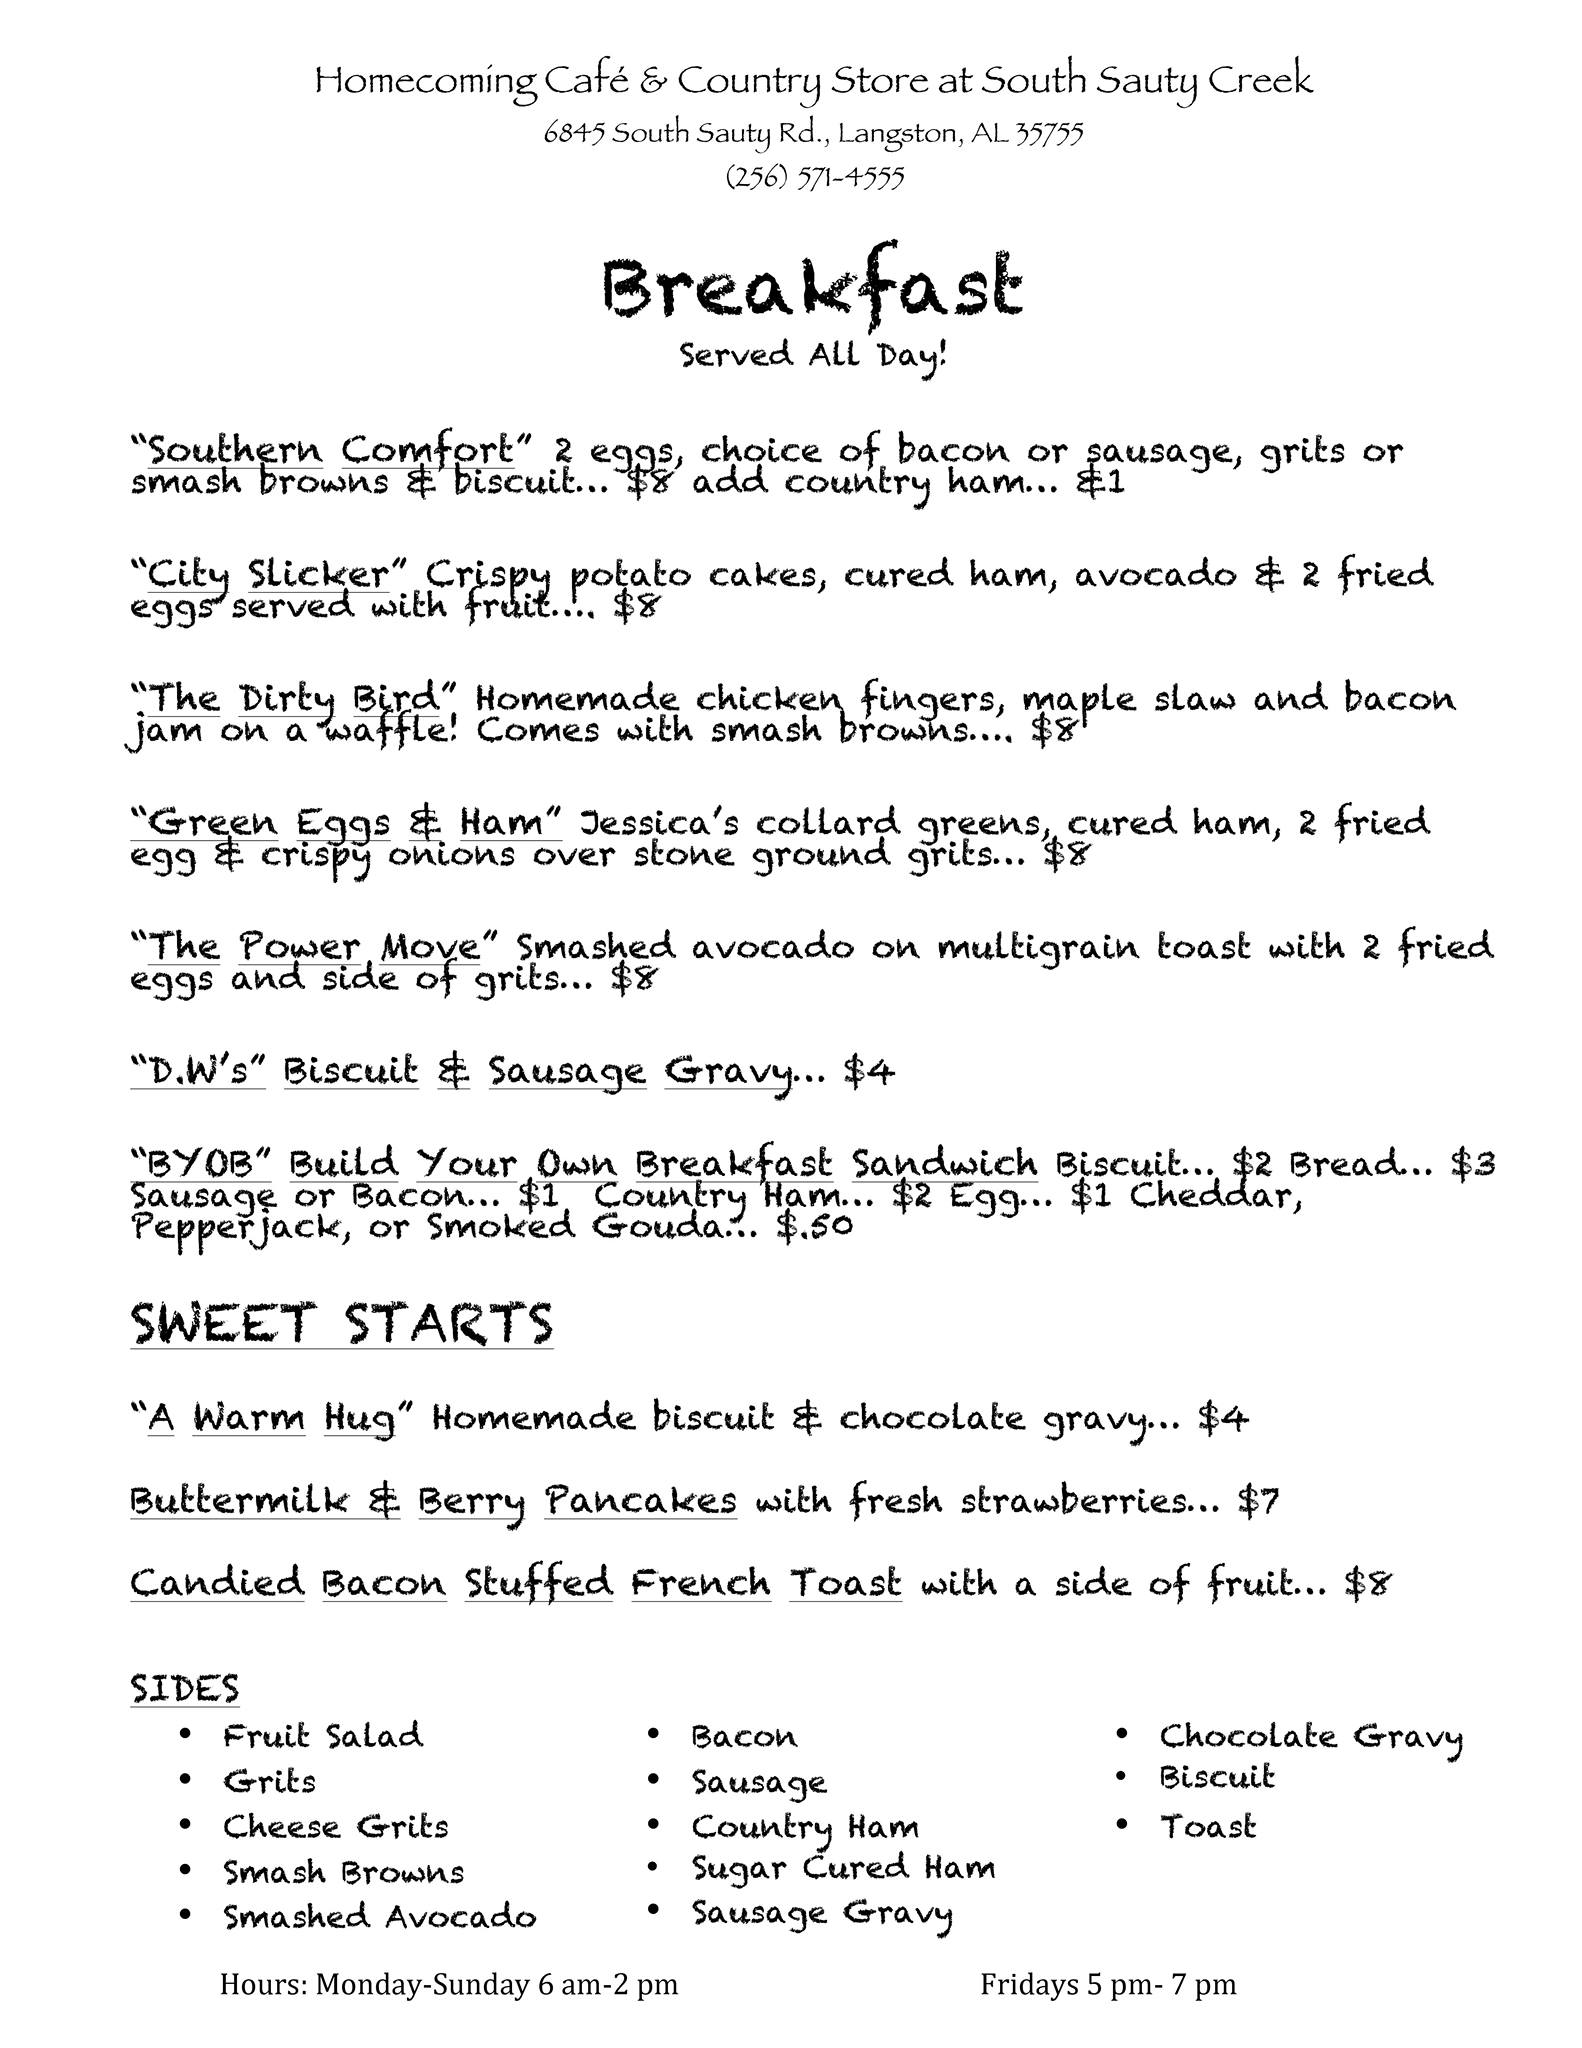 Homecoming Café & Country Store at South Sauty Creek
6845 South Sauty Rd., Langston, AL 35755
(256) 571-4555
Breakfast
Served All Day!
“Southern Comfort” 2 eggs, choice of bacon or sausage, grits or
smash browns & biscuit... $8 add country ham... &1
“City Slicker” Crispy potato cakes, cured ham, avocado & 2 fried
eggs served with fruit.... $8
“The Dirty Bird” Homemade chicken fingers, maple slaw and bacon
jam on a waffle! Comes with smash browns.... $8
“Green Eggs & Ham” Jessica’s collard greens, cured ham, 2 fried
egg & crispy onions over stone ground grits... $8
“The Power Move” Smashed avocado on multigrain toast with 2 fried
eggs and side of grits... $8
“D.W’s” Biscuit & Sausage Gravy... $4
“BYOB” Build Your Own Breakfast Sandwich Biscuit... $2 Bread... $3
Sausage or Bacon... $1 Country Ham... $2 Egg... $1 Cheddar,
Pepperjack, or Smoked Gouda... $.50
SWEET STARTS
“A Warm Hug” Homemade biscuit & chocolate gravy... $4
Buttermilk & Berry Pancakes with fresh strawberries... $7
Candied Bacon Stuffed French Toast with a side of fruit... $8
SIDES
• Fruit Salad
• Grits
• Cheese Grits
• Smash Browns
• Smashed Avocado
• Bacon
• Sausage
• Country Ham
• Sugar Cured Ham
• Sausage Gravy
• Chocolate Gravy
• Biscuit
• Toast
Hours: Monday-Sunday 6 am-2 pm Fridays 5 pm- 7 pm